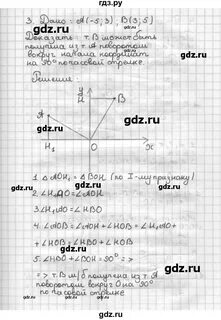 3. Дано: A(-5; 3); B(3; 5)
Доказать: т. B может быть
получена из т. A поворотом
вокруг начала координат
на 90° по часовой стрелке.
Решение
y
B
A
H₁ O x
1. △AOH₁ = △BOH (по I-му признаку)
2. ∠H₁AO = ∠BOH
3. ∠H₁OA = ∠HBO
4. ∠AOH + ∠HOB = ∠H₁AO +
+ ∠HOB = ∠HOB + ∠HBO
5. ∠HOB + ∠HBO = 90° =>
=> т. B м/б получена из т. A
поворотом вокруг O на 90°
по часовой стрелке
gdz.ru